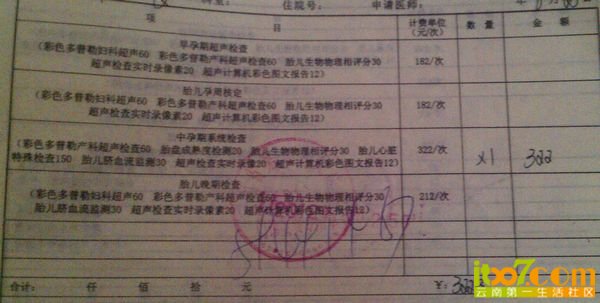 科室： 住院号： 申请医师： 年 月
项 目 计费单位(元/次) 数量 金额
早孕期超声检查
(彩色多普勒妇科超声60 彩色多普勒产科超声检查60 胎儿生物物理相评分30
超声检查实时录像素20 超声计算机彩色图文报告12) 182/次
胎儿孕周核定
(彩色多普勒妇科超声60 彩色多普勒产科超声检查60 胎儿生物物理相评分30
超声检查实时录像素20 超声计算机彩色图文报告12) 182/次
中孕期系统检查
(彩色多普勒产科超声检查60 胎盘成熟度检测20 胎儿生物物理相评分30 胎儿心脏
特殊检查150 胎儿脐血流监测30 超声检查实时录像20 超声计算机彩色图文报告12) 322/次 X1 322
胎儿晚期检查
(彩色多普勒妇科超声60 彩色多普勒产科超声检查60 胎儿生物物理相评分30
胎儿脐血流监测30 超声检查实时录像素20 超声计算机彩色图文报告12) 212/次
合计： 仟 佰 拾 元 ¥：322
云南第一生活社区